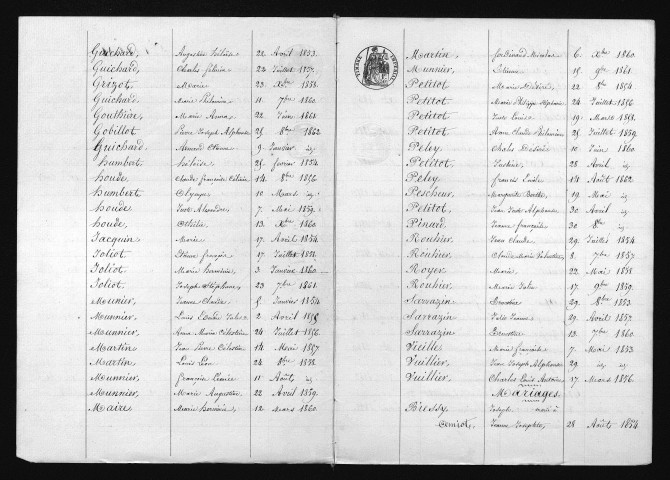 Guichard, Augustine 22 Avril 1853.
Guichard, Charles 22 Juillet 1857.
Grizot, Marie 23 Xbre 1858.
Guichard, Marie Philomène 11 7bre 1860.
Gouthière, Marie Anna 22 Juin 1861.
Gobillot Pierre Joseph Alphonse 25 8bre 1862.
Guichard, Armand 9 Janvier id
humbert, héloïse, 25 fevrier 1854.
houde, Claude françoise 14 8bre 1856.
humbert, Olympe 10 Mars id
houde, Alexandre, 7 Mai 1859.
houde, 13 Xbre 1860.
Jacquin, Marie, 17 Avril 1854.
Joliot, françois 17 Juillet
Joliot, Marie 3 Janvier 1860.
Joliot, Joseph Stéphane, 23 7bre 1861.
Meunier, Jeanne Claude, 5 Janvier 1854.
Munnier, Louis 2 Avril
Munnier, Anne Marie Célestine 24 Juillet 1856.
Martin, Jean Pierre Célestin 14 Mai 1857.
Martin, Louis Léon 24 8bre 1858.
Munnier, françoise 11 Août id
Munnier, Marie Augustine 22 Avril 1859.
Maire Marie 12 Mars 1860.
TIMBRE IMPERIAL
Martin, ferdinand Nicolas 6 Xbre 1860.
Munnier, 15 9bre 1861.
Petitot Marie 22 8bre 1854
Petitot. Marie Philippe 24 Juillet 1856
Petitot. 19 Mars 1858.
Petitot, Anne Claude Philomène 25 Juillet 1859.
Peley, Charles Désiré 10 Juin 1860.
Petitot, 28 Avril id
Peley francis Emile 14 Août 1862
Peschur, Marguerite Berthe 19 Mai id
Petitot, Alphonse 30 Avril id
Pinard. Jeanne françoise 30 8bre id
Rouhier, Jean Claude, 29 Juillet 1854
Rouhier, Claude Marie 8 7bre 1857
Royer Marie, 22 Mai 1858
Rouhier Marie 17 9bre 1859.
Sarrazin Ernestine 29 8bre 1853.
Sarrazin 29 Avril 1857.
Sarrazin Ernestine 13 7bre 1860.
Vieille Marie françoise 7. Mai 1853
Vuillier, Jean Joseph Alphonse 29 id
Vuillier, Charles Louis Antoine 17 Mars 1856.
Mariages.
Bressy, Joseph marié à
Cemiot, Jeanne Josephte, 28 Août 1854